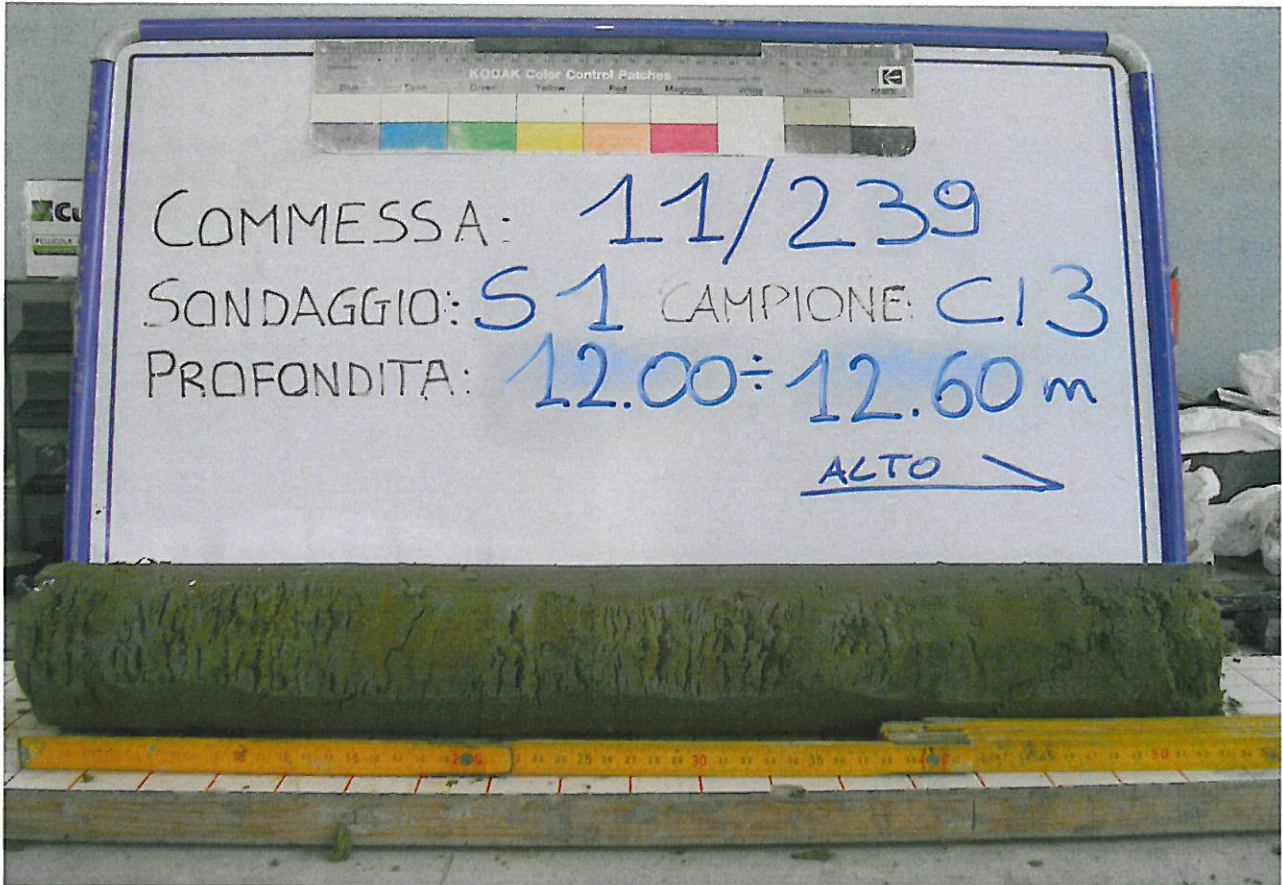 KODAK Color Control Patches
Blue Cyan Green Yellow Red Magenta White Brown
COMMESSA: 11/239
SONDAGGIO: S1 CAMPIONE: CI3
PROFONDITA: 12.00÷12.60 m
ALTO
PELLICOLA
30 50